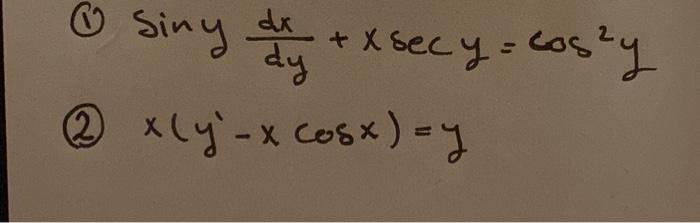 ① Siny dx/dy + x secy = cos²y
② x(y' - x cosx) = y